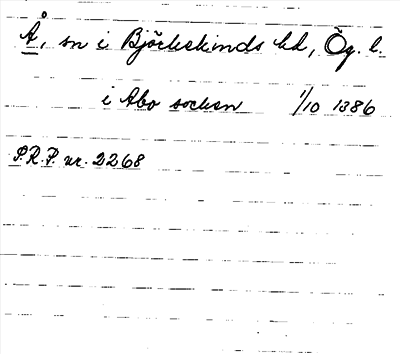 Å, sn i Björkekinds hd, Ög. l.
i Abo socken 1/10 1386
S.R.P. nr. 2268